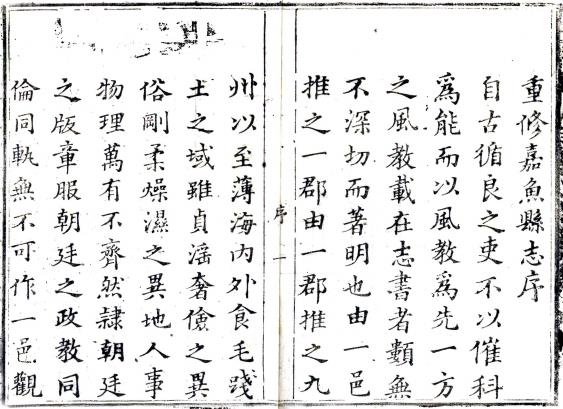 重修嘉魚縣志序
自古循良之吏不以催科
爲能而以風教爲先一方
之風教載在志書者顙無
不深切而著明也由一邑
推之一郡由一郡推之九
序 一
州以至薄海内外食毛踐
土之域雖貞滛奢儉之異
俗剛柔燥濕之異地人事
物理萬有不齊然隷朝廷
之版章服朝廷之政教同
倫同軌無不可作一邑觀